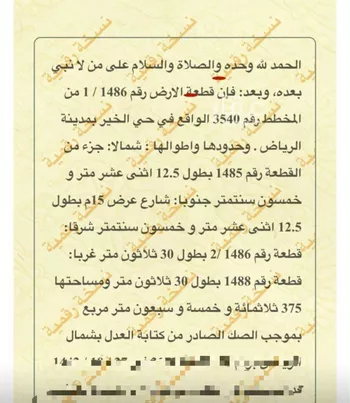 الحمد لله وحده والصلاة والسلام على من لا نبي
بعده، وبعد: فإن قطعة الارض رقم 1486 / 1 من
المخطط رقم 3540 الواقع في حي الخير بمدينة
الرياض . وحدودها واطوالها : شمالا: جزء من
القطعة رقم 1485 بطول 12.5 اثنى عشر متر و
خمسون سنتمتر جنوبا: شارع عرض 15م بطول
12.5 اثنى عشر متر و خمسون سنتمتر شرقا:
قطعة رقم 1486 /2 بطول 30 ثلاثون متر غربا:
قطعة رقم 1488 بطول 30 ثلاثون متر ومساحتها
375 ثلاثمائة و خمسة و سبعون متر مربع
بموجب الصك الصادر من كتابة العدل بشمال
نسخة رقمية